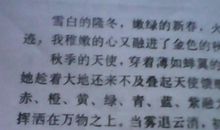 雪白的隆冬，嫩绿的新春，火
迹，我稚嫩的心又融进了金色的秋
秋季的天使，穿着薄如蝉翼的
她趁着大地还来不及叠起天使
赤、橙、黄、绿、青、蓝、紫融
挥洒在万物之上。当雾退云消，